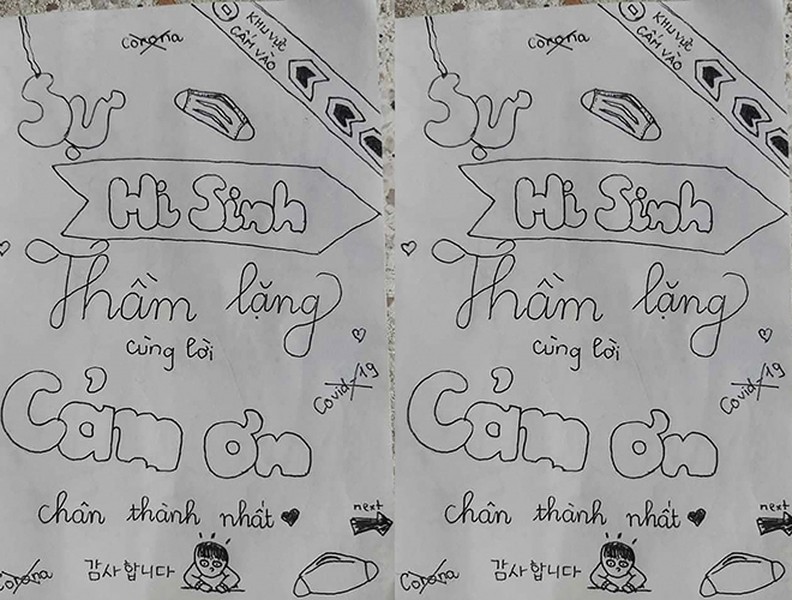 Corona
KHU VỰC
CẤM VÀO
Sự
Hi Sinh
Thầm lặng
cùng lời
Covid 19
Cảm ơn
chân thành nhất
next
Corona
감사합니다
Corona
KHU VỰC
CẤM VÀO
Sự
Hi Sinh
Thầm lặng
cùng lời
Covid 19
Cảm ơn
chân thành nhất
next
Corona
감사합니다